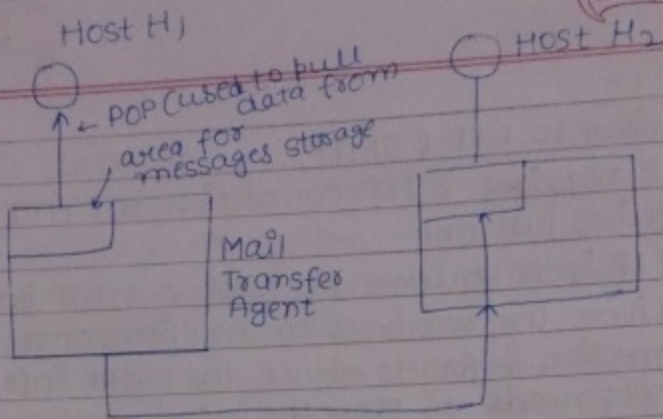 Host H1
Host H2
← POP (used to pull
data from
area for
messages storage
Mail
Transfer
Agent